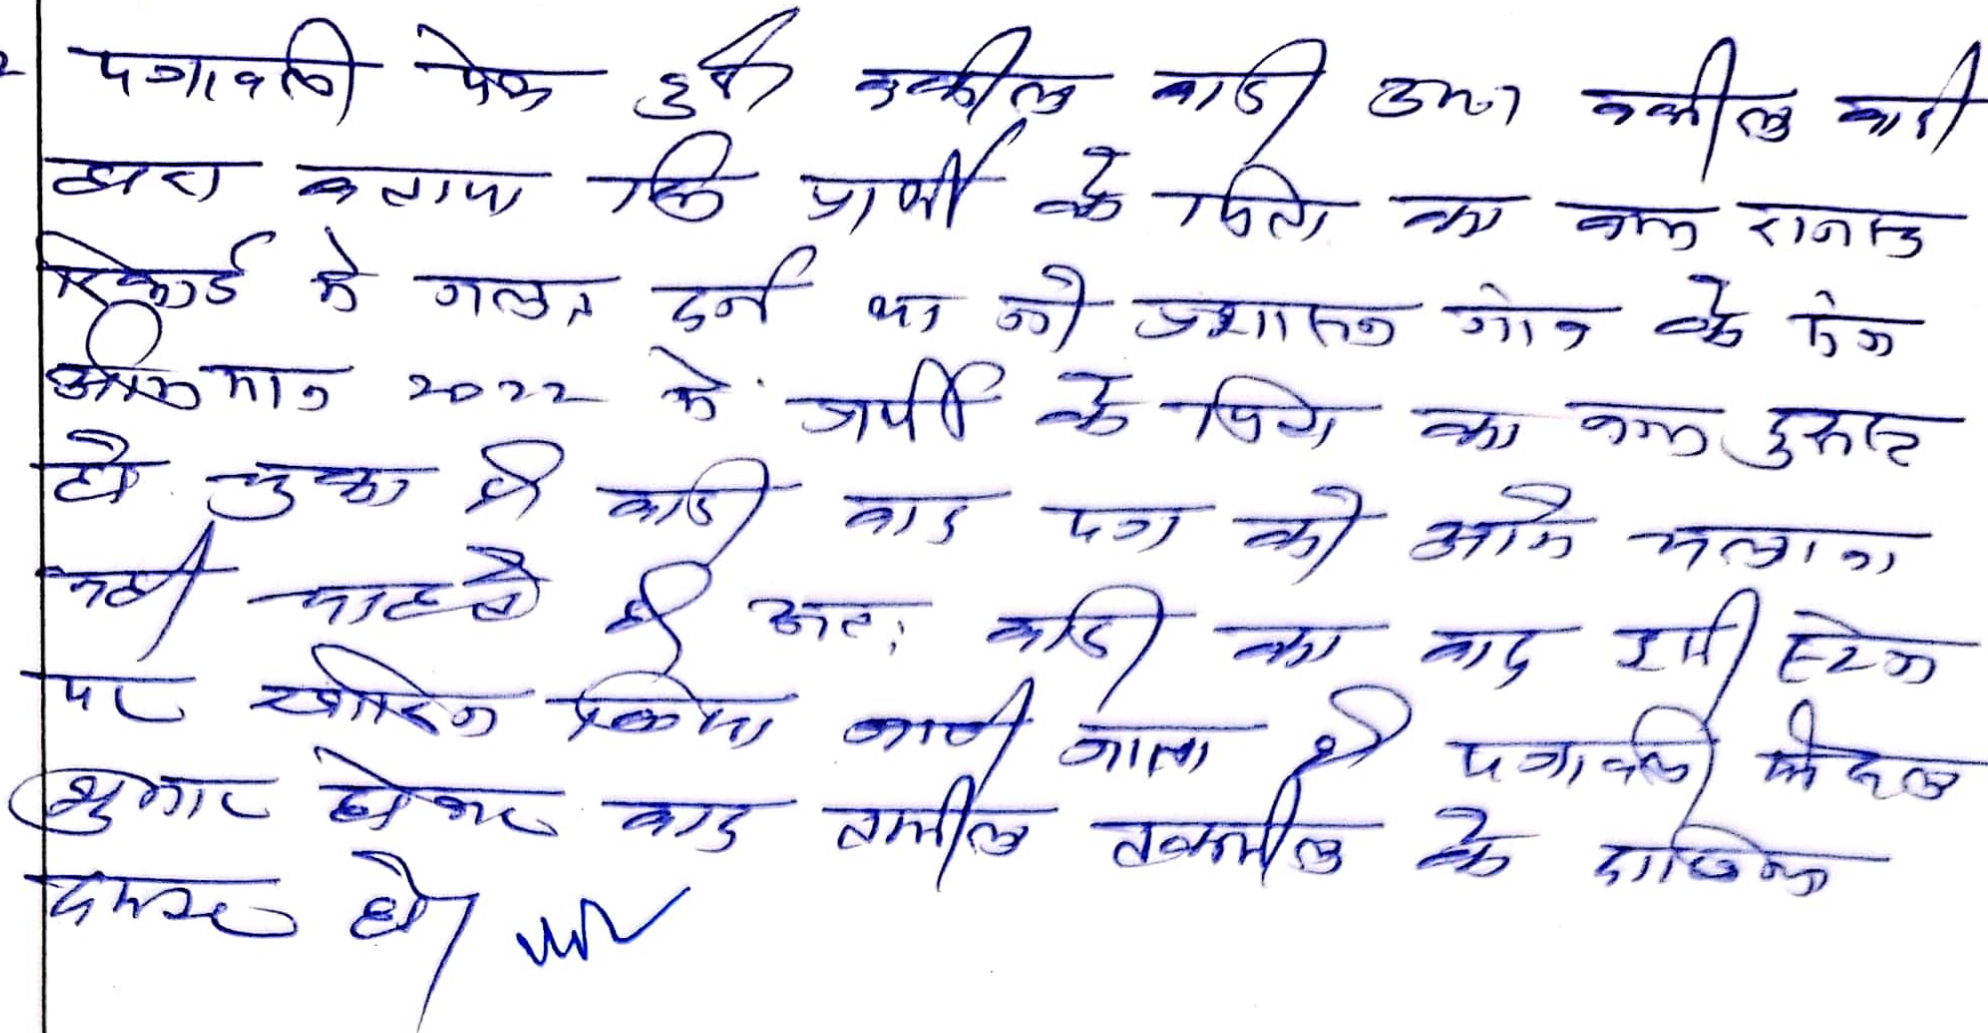 पत्रावली पेश हुई वकील वादी उप0 वकील वादी
द्वारा बताया कि प्रार्थी के पिता का नाम राजस्व
रिकार्ड मे गलत दर्ज था जो प्रशासन गांव के संग
अभियान 2022 मे प्रार्थी के पिता का नाम दुरूस्त
हो चुका है वादी वाद पत्र को आगे चलाना
नही चाहते है अतः वादी का वाद इसी स्टेज
पर खारिज किया जाता है पत्रावली फैसल
शुमार होकर बाद तामील तकमील के दाखिल
दफ्तर हो।